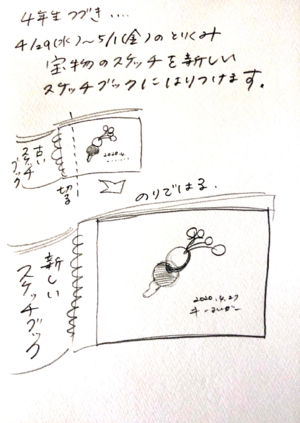 4年生 つづき‥‥
4/29(水)〜5/1(金)のとりくみ
宝物のスケッチを新しい
スケッチブックにはりつけます。
古い
スケッチ
ブック
2020.4.
切る
のりではる.
新しい
スケッチブック
2020.4.27